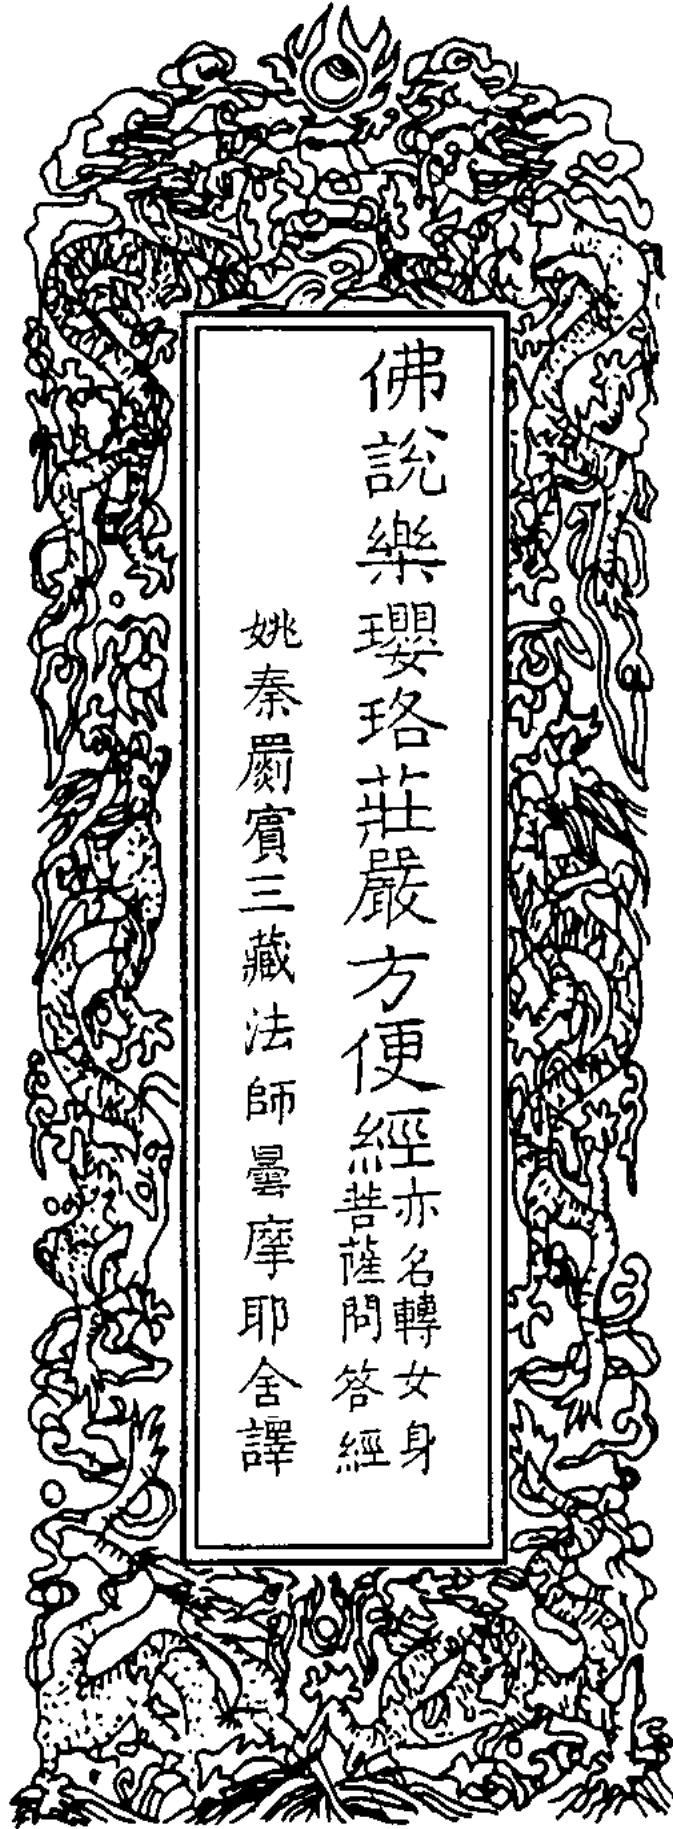 佛說樂瓔珞莊嚴方便經
亦名轉女身
菩薩問答經
姚秦罽賓三藏法師曇摩耶舍譯